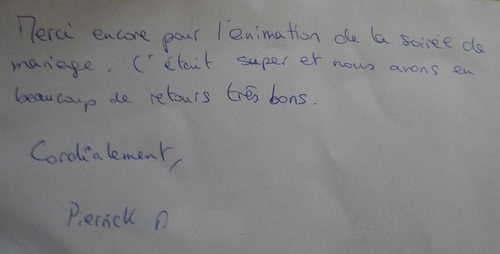 Merci encore pour l'enimation de la soirée de
mariage. C'était super et nous avons eu
beaucoup de retours très bons.
Cordialement,
Pierrick D